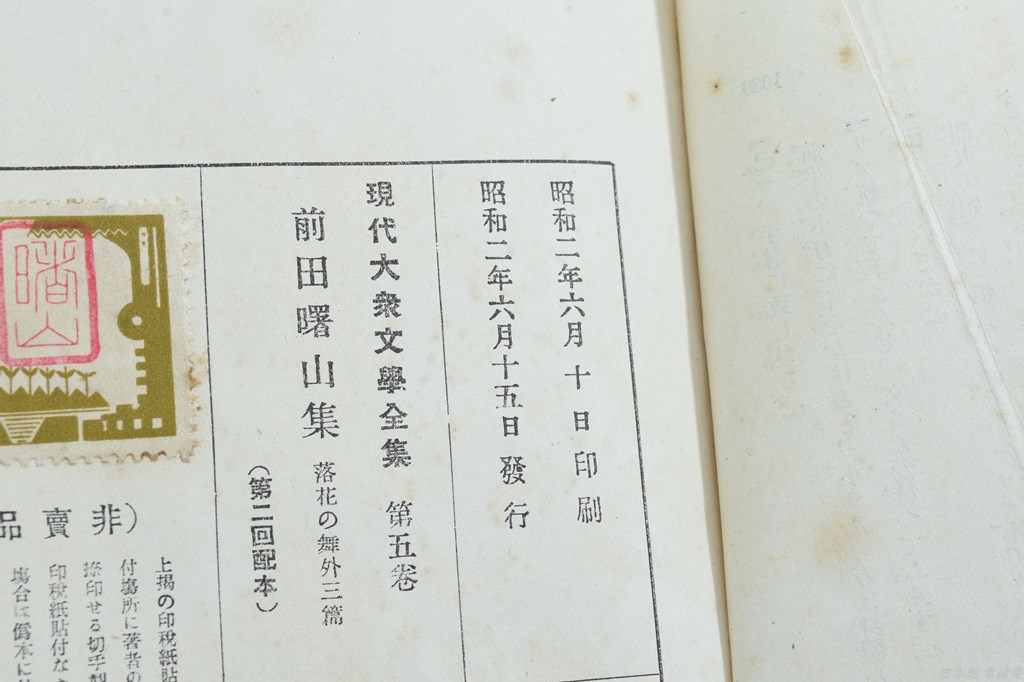 昭和二年六月十日印刷
昭和二年六月十五日發行
現代大衆文學全集 第五卷
前田曙山集 落花の舞外三篇
（第二回配本）
曙山
非賣品）
上掲の印税紙貼
付塲所に著者の
捺印せる切手型
印税紙貼付なき
塲合は僞本に付